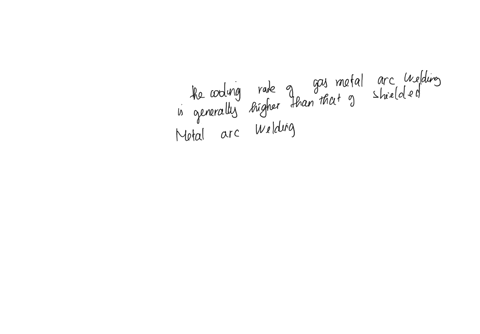 the cooling rate of gas metal arc welding
is generally higher than that of shielded
Metal arc Welding